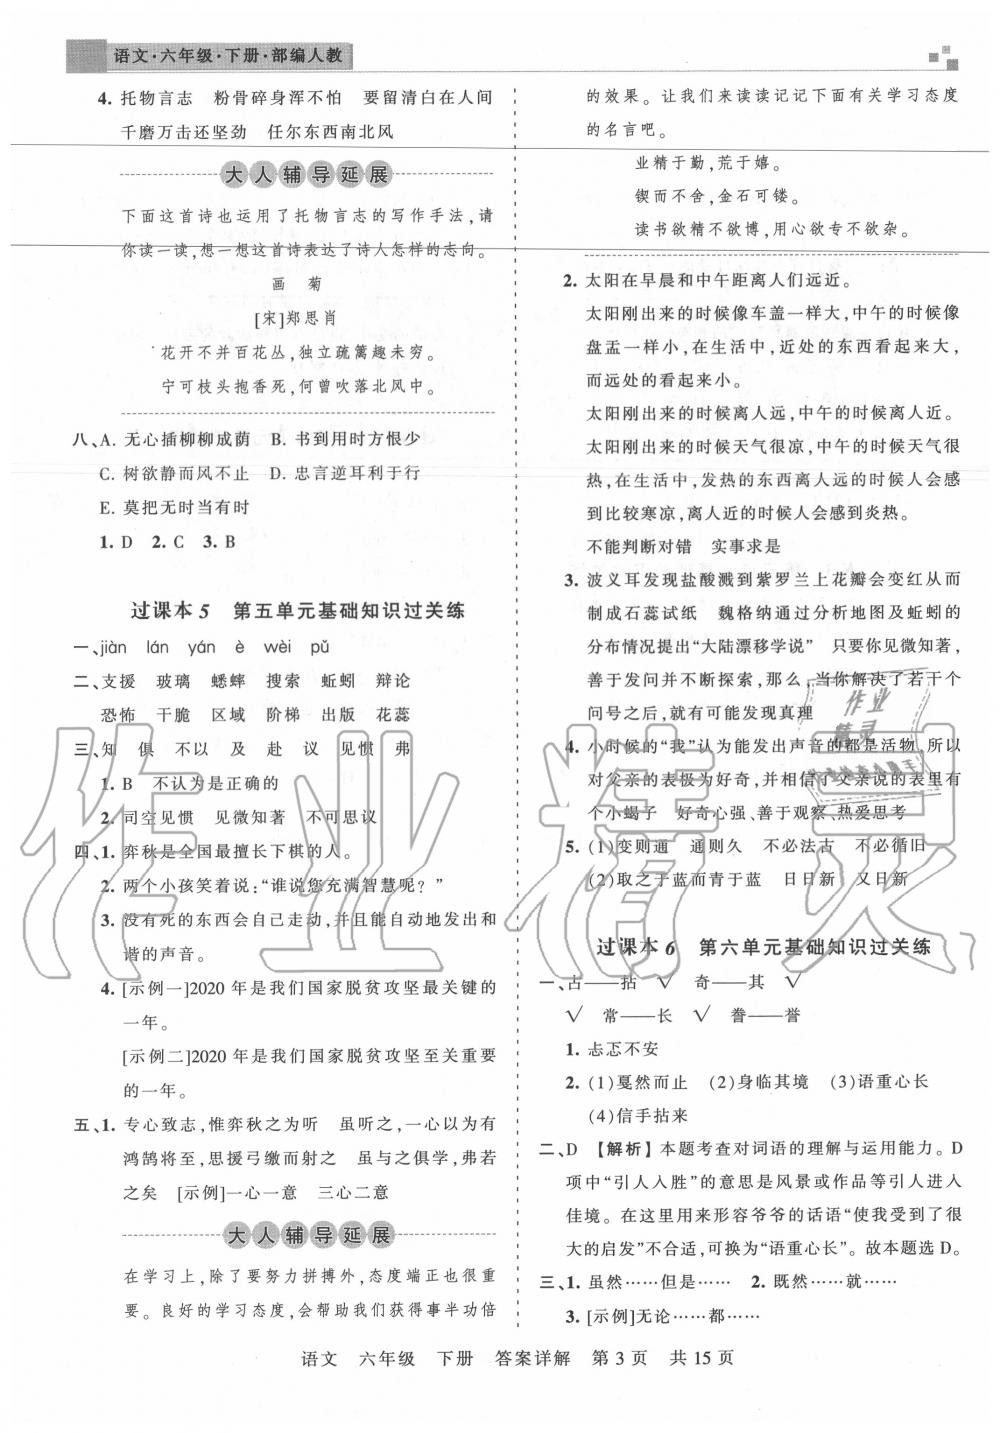 语文·六年级·下册·部编人教
4. 托物言志　粉骨碎身浑不怕　要留清白在人间
千磨万击还坚劲　任尔东西南北风
大人辅导延展
下面这首诗也运用了托物言志的写作手法,请
你读一读,想一想这首诗表达了诗人怎样的志向。
画　菊
[宋]郑思肖
花开不并百花丛,独立疏篱趣未穷。
宁可枝头抱香死,何曾吹落北风中。
八、A. 无心插柳柳成荫　B. 书到用时方恨少
C. 树欲静而风不止　D. 忠言逆耳利于行
E. 莫把无时当有时
1. D　2. C　3. B
过课本 5　第五单元基础知识过关练
一、jiàn　lán　yán　è　wèi　pǔ
二、支援　玻璃　蟋蟀　搜索　蚯蚓　辩论
恐怖　干脆　区域　阶梯　出版　花蕊
三、知　俱　不以　及　赴　议　见惯　弗
1. B　不认为是正确的
2. 司空见惯　见微知著　不可思议
四、1. 弈秋是全国最擅长下棋的人。
2. 两个小孩笑着说:“谁说您充满智慧呢？”
3. 没有死的东西会自己走动,并且能自动地发出和
谐的声音。
4. [示例一]2020 年是我们国家脱贫攻坚最关键的
一年。
[示例二]2020 年是我们国家脱贫攻坚至关重要
的一年。
五、1. 专心致志,惟弈秋之为听　虽听之,一心以为有
鸿鹄将至,思援弓缴而射之　虽与之俱学,弗若
之矣　[示例]一心一意　三心二意
大人辅导延展
在学习上,除了要努力拼搏外,态度端正也很重
要。良好的学习态度,会帮助我们获得事半功倍
的效果。让我们来读读记记下面有关学习态度
的名言吧。
业精于勤,荒于嬉。
锲而不舍,金石可镂。
读书欲精不欲博,用心欲专不欲杂。
2. 太阳在早晨和中午距离人们远近。
太阳刚出来的时候像车盖一样大,中午的时候像
盘盂一样小,在生活中,近处的东西看起来大,
而远处的看起来小。
太阳刚出来的时候离人远,中午的时候离人近。
太阳刚出来的时候天气很凉,中午的时候天气很
热,在生活中,发热的东西离人远的时候人会感
到比较寒凉,离人近的时候人会感到炎热。
不能判断对错　实事求是
3. 波义耳发现盐酸溅到紫罗兰上花瓣会变红从而
制成石蕊试纸　魏格纳通过分析地图及蚯蚓的
分布情况提出“大陆漂移学说”　只要你见微知著,
善于发问并不断探索,那么,当你解决了若干个
问号之后,就有可能发现真理
4. 小时候的“我”认为能发出声音的都是活物,所以
对父亲的表极为好奇,并相信了父亲说的表里有
个小蝎子　好奇心强、善于观察、热爱思考
5. (1)变则通　通则久　不必法古　不必循旧
(2)取之于蓝而青于蓝　日日新　又日新
过课本 6　第六单元基础知识过关练
一、古——拈　√　奇——其　√
√　常——长　√　誊——誉
1. 忐忑不安
2. (1)戛然而止　(2)身临其境　(3)语重心长
(4)信手拈来
二、D　【解析】本题考查对词语的理解与运用能力。D
项中“引人入胜”的意思是风景或作品等引人进入
佳境。在这里用来形容爷爷的话语“使我受到了很
大的启发”不合适,可换为“语重心长”。故本题选 D。
三、1. 虽然……但是……　2. 既然……就……
3. [示例]无论……都……
语文　六年级　下册　答案详解　第 3 页　共 15 页
作业精灵
作业
精灵